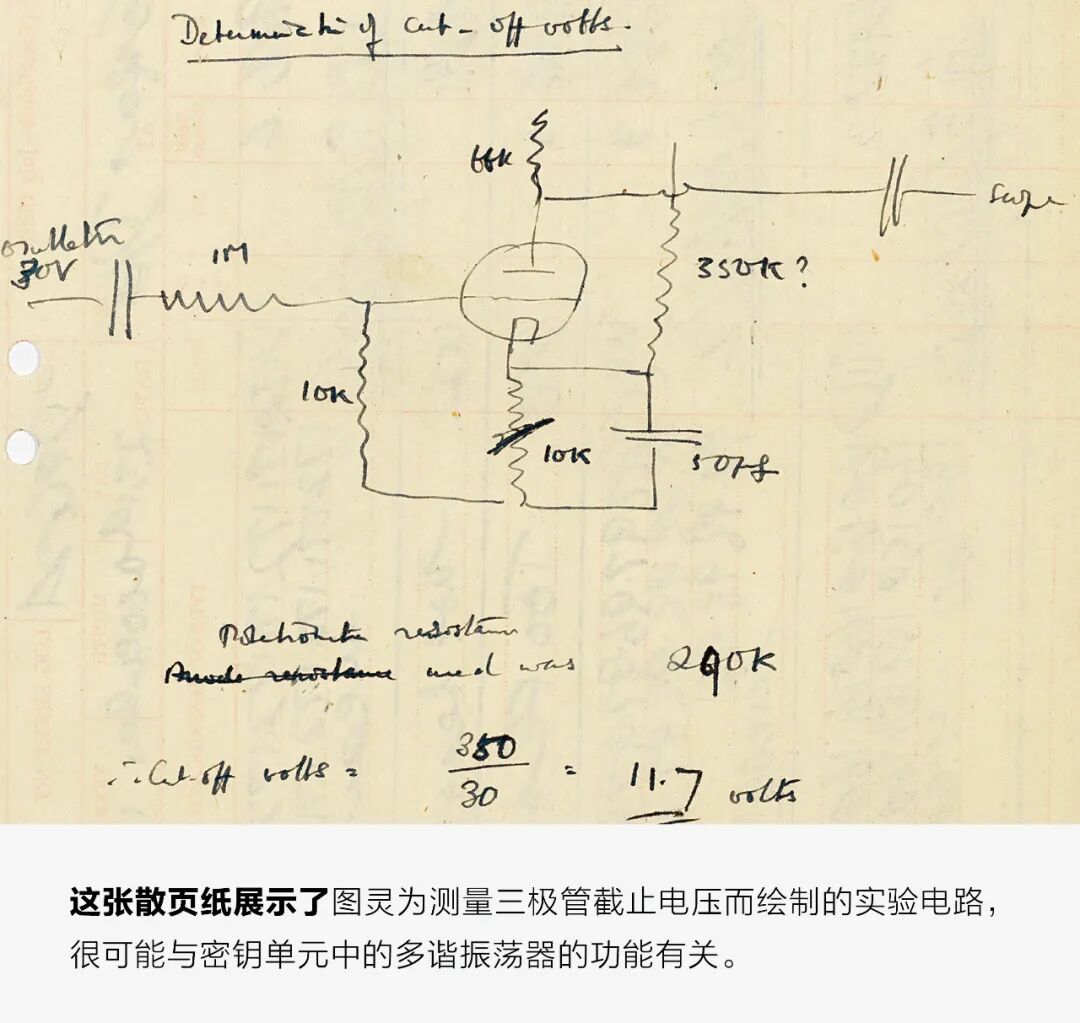 Determination of cut-off volts.
66K
Scope
oscillator
30V
1M
350K?
10K
10K
50pf
Potentiometer resistance
Anode resistance used was 290K
∴ Cut-off volts = 350/30 = 11.7 volts
这张散页纸展示了图灵为测量三极管截止电压而绘制的实验电路，
很可能与密钥单元中的多谐振荡器的功能有关。